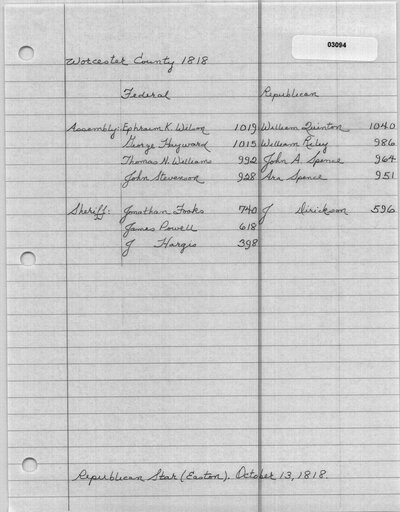 03094
Worcester County 1818
Federal Republican
Assembly: Ephraim K. Wilson 1019 William Quinton 1040
George Hayward 1015 William Riley 986
Thomas N. Williams 992 John A. Spence 964
John Stevenson 928 Ara Spence 951
Sheriff: Jonathan Fooks 740 J Dirickson 596
James Powell 618
J Hargis 398
Republican Star (Easton). October 13, 1818.